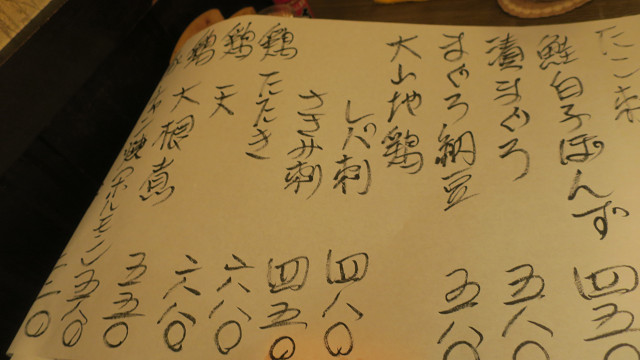 たこ刺
鮭白子ぽんず 四五〇
漬まぐろ 五八〇
まぐろ納豆 五八〇
大山地鶏
レバ刺 四八〇
ささみ刺 四五〇
鶏たたき 六八〇
鶏天 六八〇
鶏大根煮 五五〇
ホルモン 五八〇